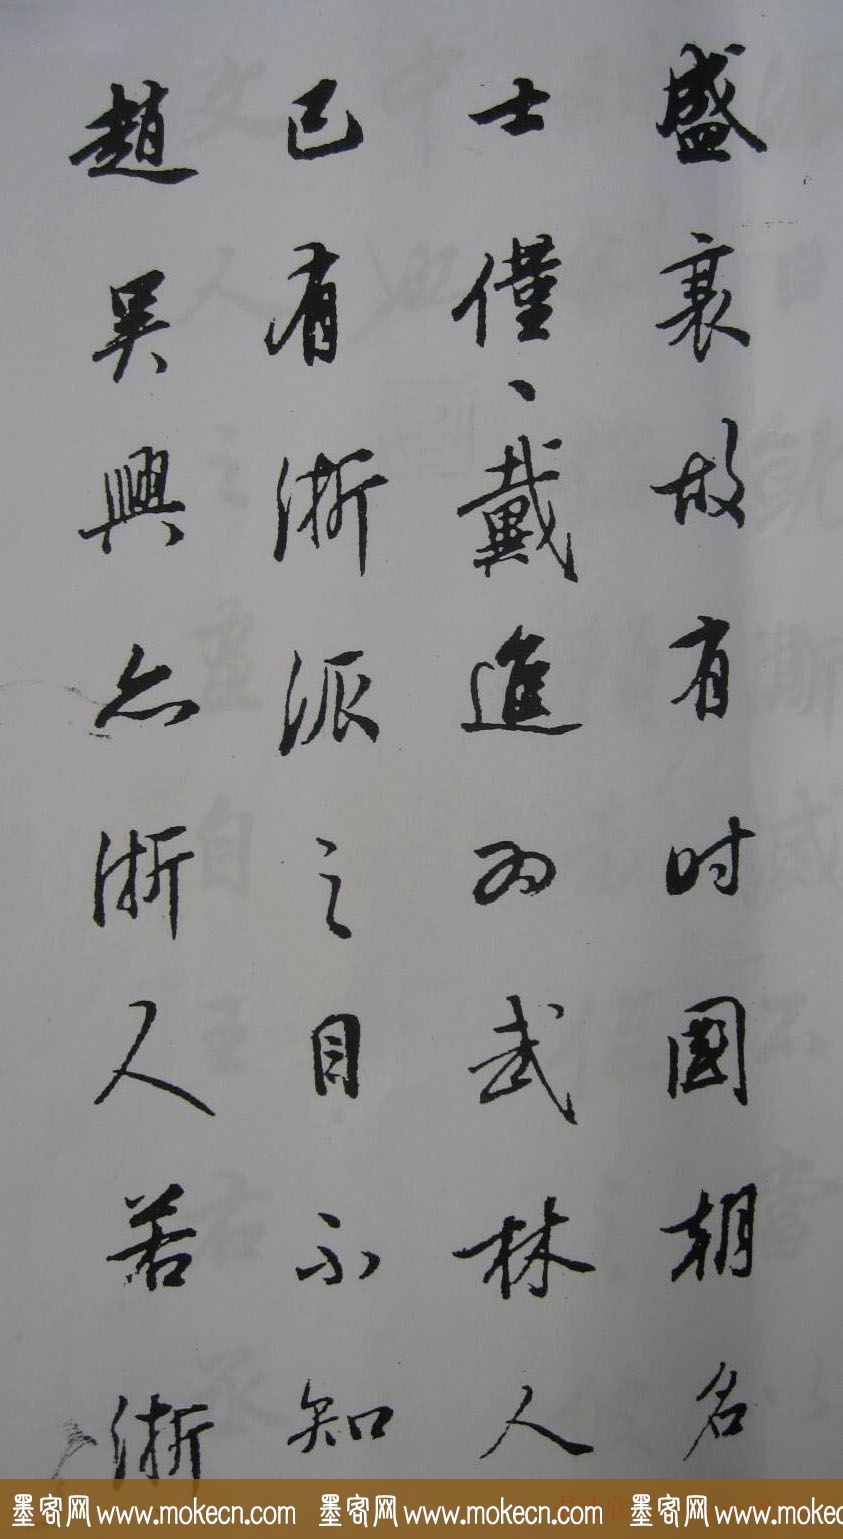 盛衰故有时國朝名
士僅、戴進为武林人
已有浙派之目不知
趙吴興亦浙人若浙
墨客网 www.mokecn.com 墨客网 www.mokecn.com 墨客网 www.mokec